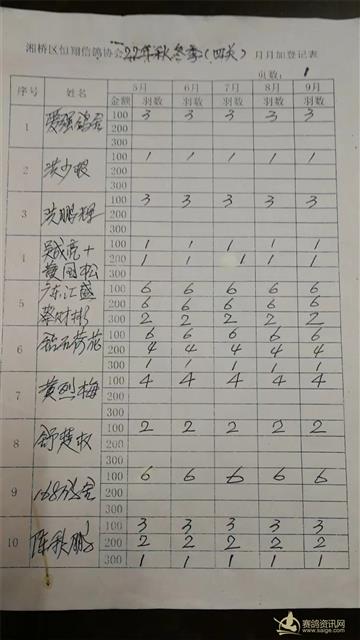 湘桥区恒翔信鸽协会22年秋冬季(四关)月月加登记表
页数: 1
序号 姓名 5月 6月 7月 8月 9月
金额 羽数 羽数 羽数 羽数 羽数
1 爱强鸽舍 100 3 3 3 3 3
200
300
2 洪少 100 1 1 1 1 1
200
300
3 洪鹏辉 100 3 3 3 3 3
200
300
1 吴成亮+ 100 1 1 1 1 1
黄国松 200 1 1 1 1 1
300
5 广东汇盛 100 6 6 6 6 6
200 6 6 6 6 6
蔡彬 300 2 2 2 2 2
6 钻石荷花 100 6 6 6 6 6
200 4 4 4 4 4
300 1 1 1 1 1
7 黄列梅 100 4 4 4 4 4
200
300
8 舒楚权 100 2 2 2 2 2
200
300
9 168鸽舍 100 6 6 6 6 6
200
300
10 陈秋鹏 100 3 3 3 3 3
200 2 2 2 2 2
300 1 1 1 1 1
赛鸽资讯网
www.saige.com